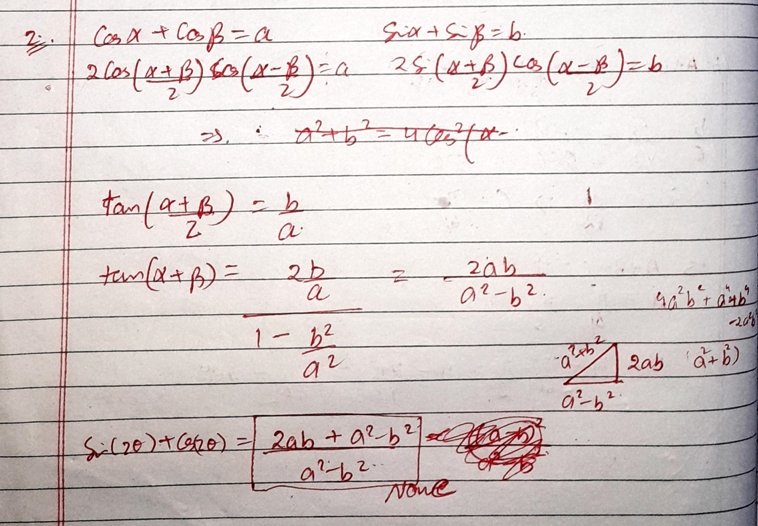 2. Cosα + Cosβ = a Sinα + Sinβ = b
2Cos(α+β/2) Cos(α-β/2) = a 2S(α+β/2) Cos(α-β/2) = b
⇒ a² + b² = 4Cos²(α-
tan(α+β/2) = b/a
tan(α+β) = (2b/a)/(1 - b²/a²) = 2ab/(a²-b²)
4a²b² + a⁴+b⁴
-2a²b²
a²+b² 2ab (a²+b²)
a²-b²
Sin(2θ) + Cos(2θ) = (2ab + a² - b²)/(a²-b²) =
None